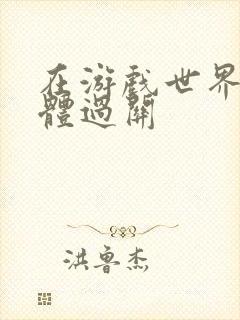 在游戲世界
體過關
洪魯杰